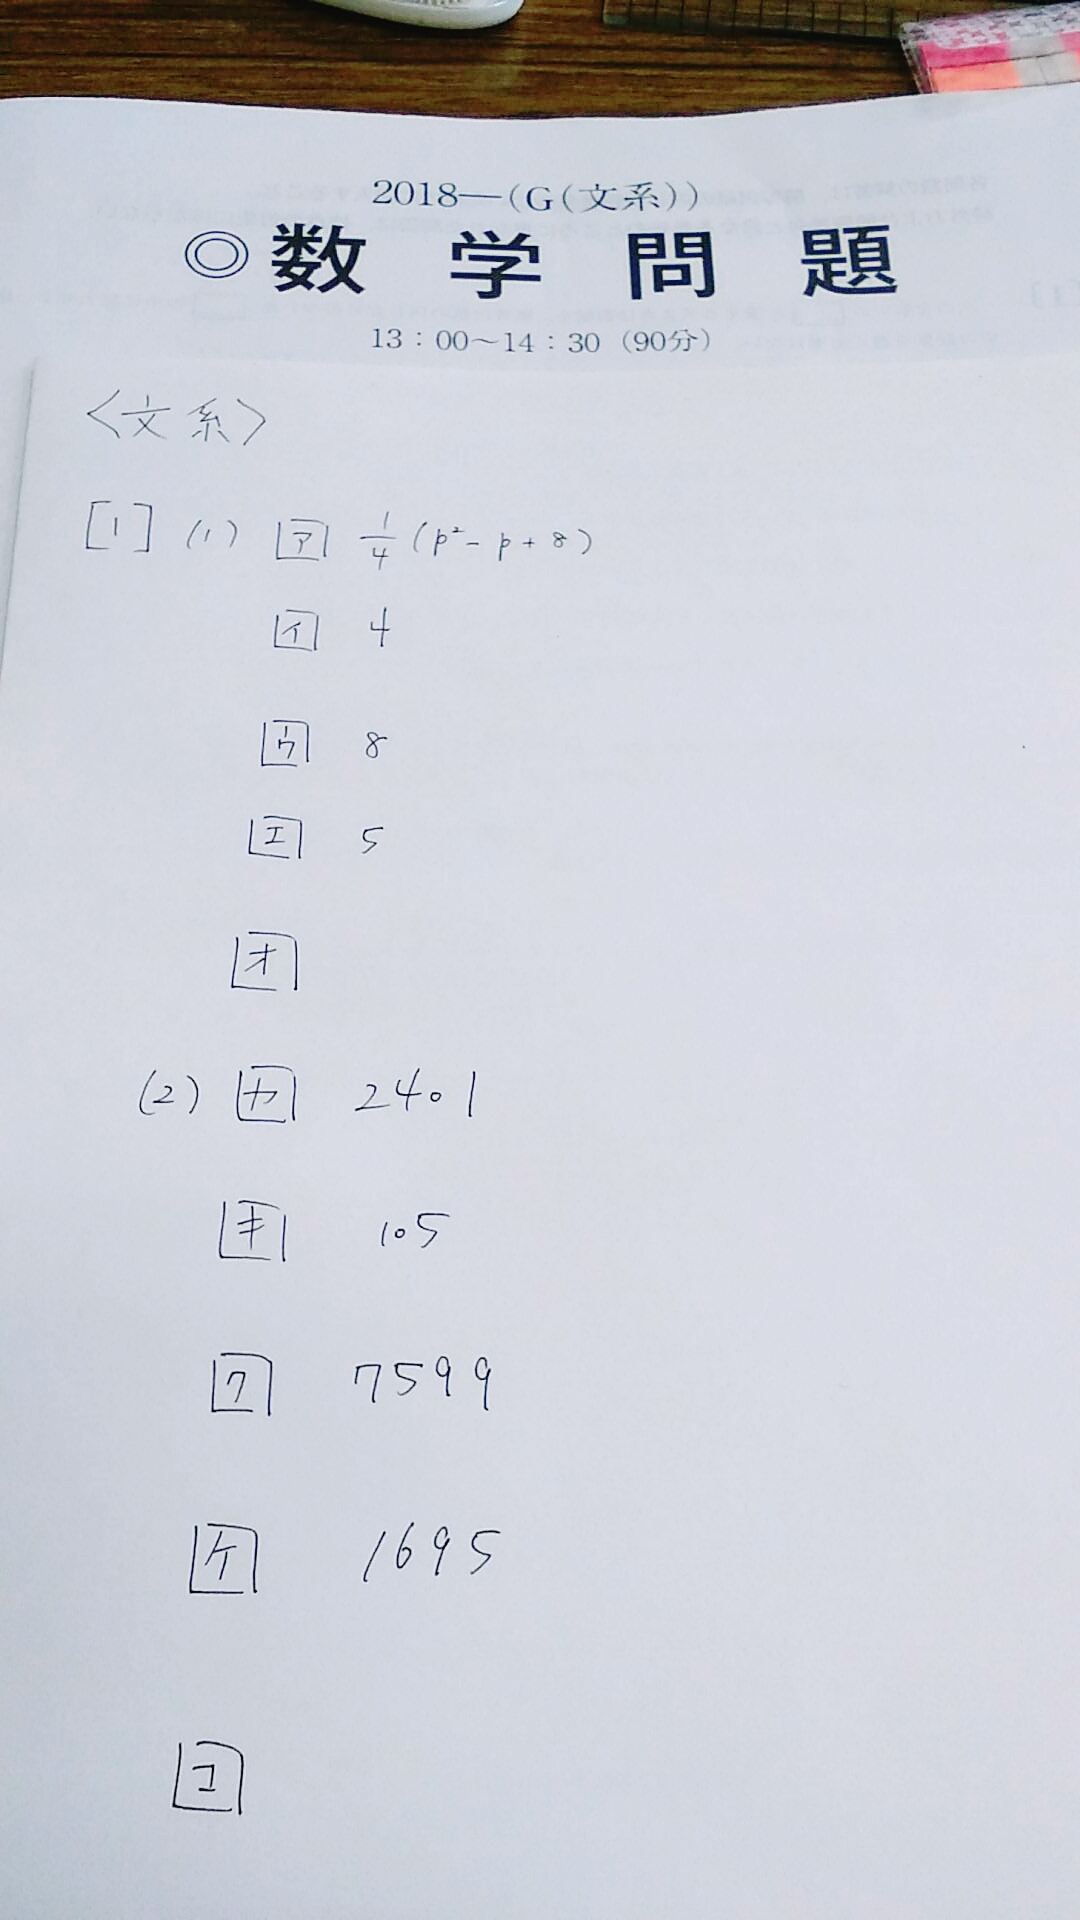 2018―(G(文系))
◎数学問題
13：00～14：30（90分）
〈文系〉
[1] (1) ア 1/4 (p²-p+8)
イ 4
ウ 8
エ 5
オ
(2) カ 2401
キ 105
ク 7599
ケ 1695
コ